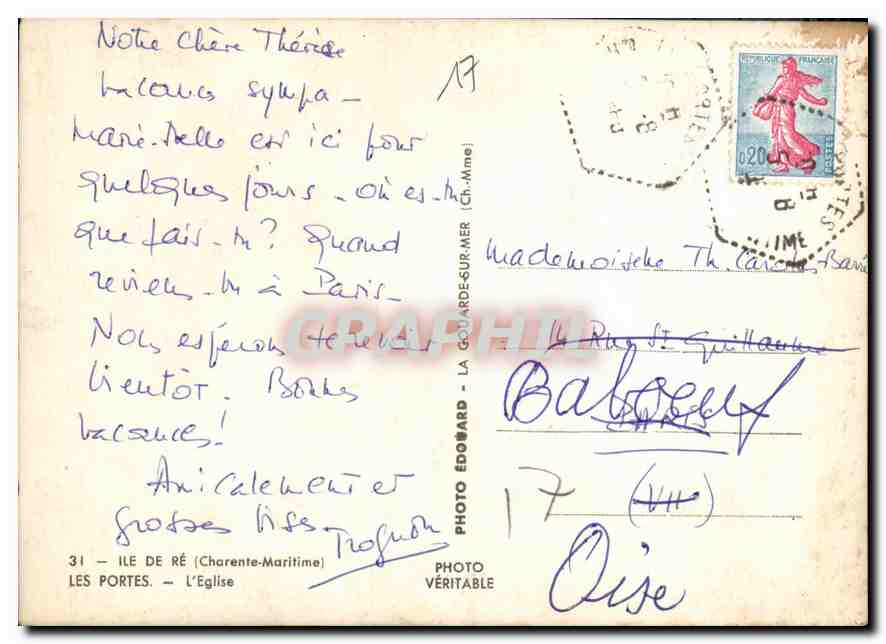 Notre chère Thérèse
vacances sympa -
Marie-Belle est ici pour
quelques jours - où es-tu
que fais-tu? Quand
reviens-tu à Paris -
Nous espérons te revoir
bientôt. Bonnes
vacances!
Amicalement et
grosses bises -
Trognon
31 — ILE DE RÉ (Charente-Maritime)
LES PORTES. — L'Eglise
PHOTO
VÉRITABLE
PHOTO ÉDOUARD - LA GOUARDE-SUR-MER (Ch.-Mme)
17
RÉPUBLIQUE FRANÇAISE
0,20
POSTES
Mademoiselle Th.
Rue St Guillaume
Baboeuf
PARIS
17
(VII)
Oise
GRAPHIL